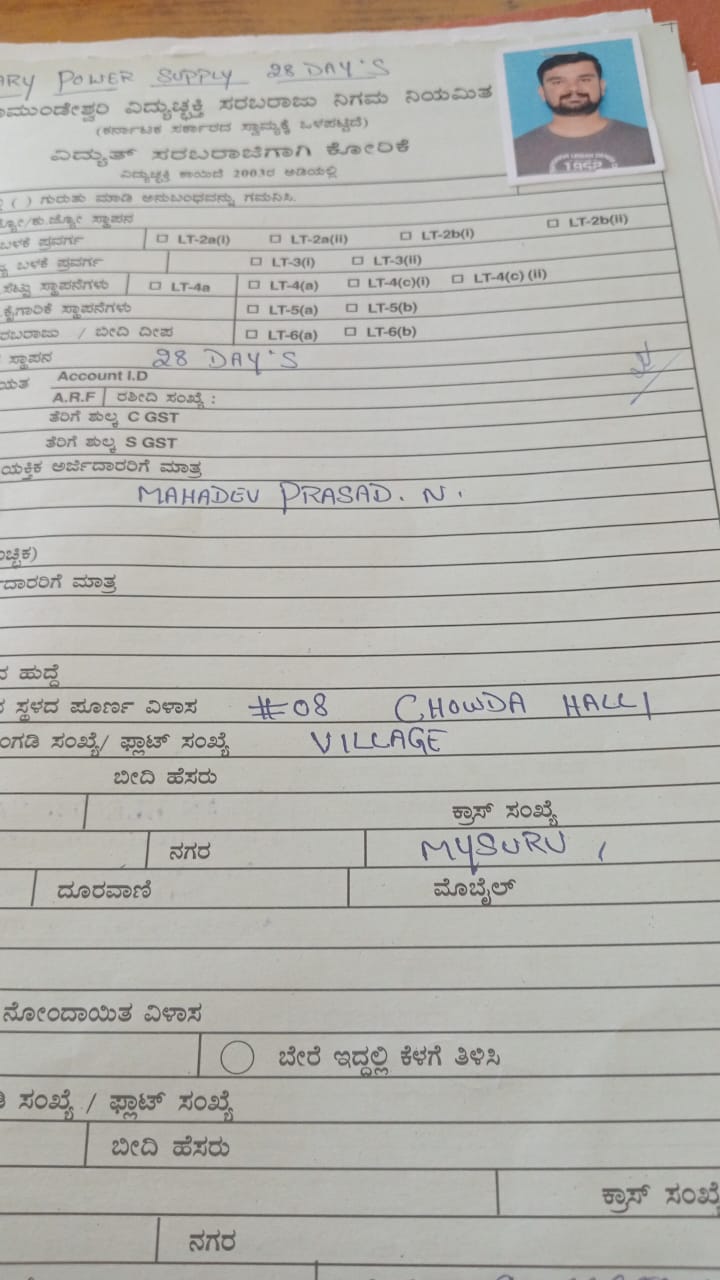 POWER SUPPLY 28 DAY'S
ವಿದ್ಯುಚ್ಛಕ್ತಿ ಸರಬರಾಜು ನಿಗಮ ನಿಯಮಿತ
(ಕರ್ನಾಟಕ ಸರ್ಕಾರದ ಸ್ವಾಮ್ಯಕ್ಕೆ ಒಳಪಟ್ಟಿದೆ)
ವಿದ್ಯುತ್ ಸರಬರಾಜಿಗಾಗಿ ಕೋರಿಕೆ
ವಿದ್ಯುಚ್ಛಕ್ತಿ ಕಾಯಿದೆ 2003ರ ಅಡಿಯಲ್ಲಿ
( ) ಗುರುತು ಮಾಡಿ ಅನುಬಂಧವನ್ನು ಗಮನಿಸಿ.
ಸ್ಥಾಪನ
ಬಳಕೆ ಪ್ರವರ್ಗ ☐ LT-2a(i) ☐ LT-2a(ii) ☐ LT-2b(i) ☐ LT-2b(ii)
ಬಳಕೆ ಪ್ರವರ್ಗ ☐ LT-3(i) ☐ LT-3(ii)
ಸೆಟ್ಟು ಸ್ಥಾಪನೆಗಳು ☐ LT-4a ☐ LT-4(a) ☐ LT-4(c)(i) ☐ LT-4(c) (ii)
ಕೈಗಾರಿಕೆ ಸ್ಥಾಪನೆಗಳು ☐ LT-5(a) ☐ LT-5(b)
/ ಬೀದಿ ದೀಪ ☐ LT-6(a) ☐ LT-6(b)
ಸ್ಥಾಪನ 28 DAY'S
Account I.D
A.R.F ರಶೀದಿ ಸಂಖ್ಯೆ :
ತೆರಿಗೆ ಶುಲ್ಕ C GST
ತೆರಿಗೆ ಶುಲ್ಕ S GST
ಅರ್ಜಿದಾರರಿಗೆ ಮಾತ್ರ
MAHADEV PRASAD. N.
ಮಾತ್ರ
ಹುದ್ದೆ
ಸ್ಥಳದ ಪೂರ್ಣ ವಿಳಾಸ #08 CHOWDA HALLI
ಸಂಖ್ಯೆ/ ಫ್ಲಾಟ್ ಸಂಖ್ಯೆ VILLAGE
ಬೀದಿ ಹೆಸರು
ಕ್ರಾಸ್ ಸಂಖ್ಯೆ
ನಗರ MYSURU,
ದೂರವಾಣಿ ಮೊಬೈಲ್
ನೋಂದಾಯಿತ ವಿಳಾಸ
ಬೇರೆ ಇದ್ದಲ್ಲಿ ಕೆಳಗೆ ತಿಳಿಸಿ
ಸಂಖ್ಯೆ / ಫ್ಲಾಟ್ ಸಂಖ್ಯೆ
ಬೀದಿ ಹೆಸರು
ಕ್ರಾಸ್ ಸಂಖ್ಯೆ
ನಗರ